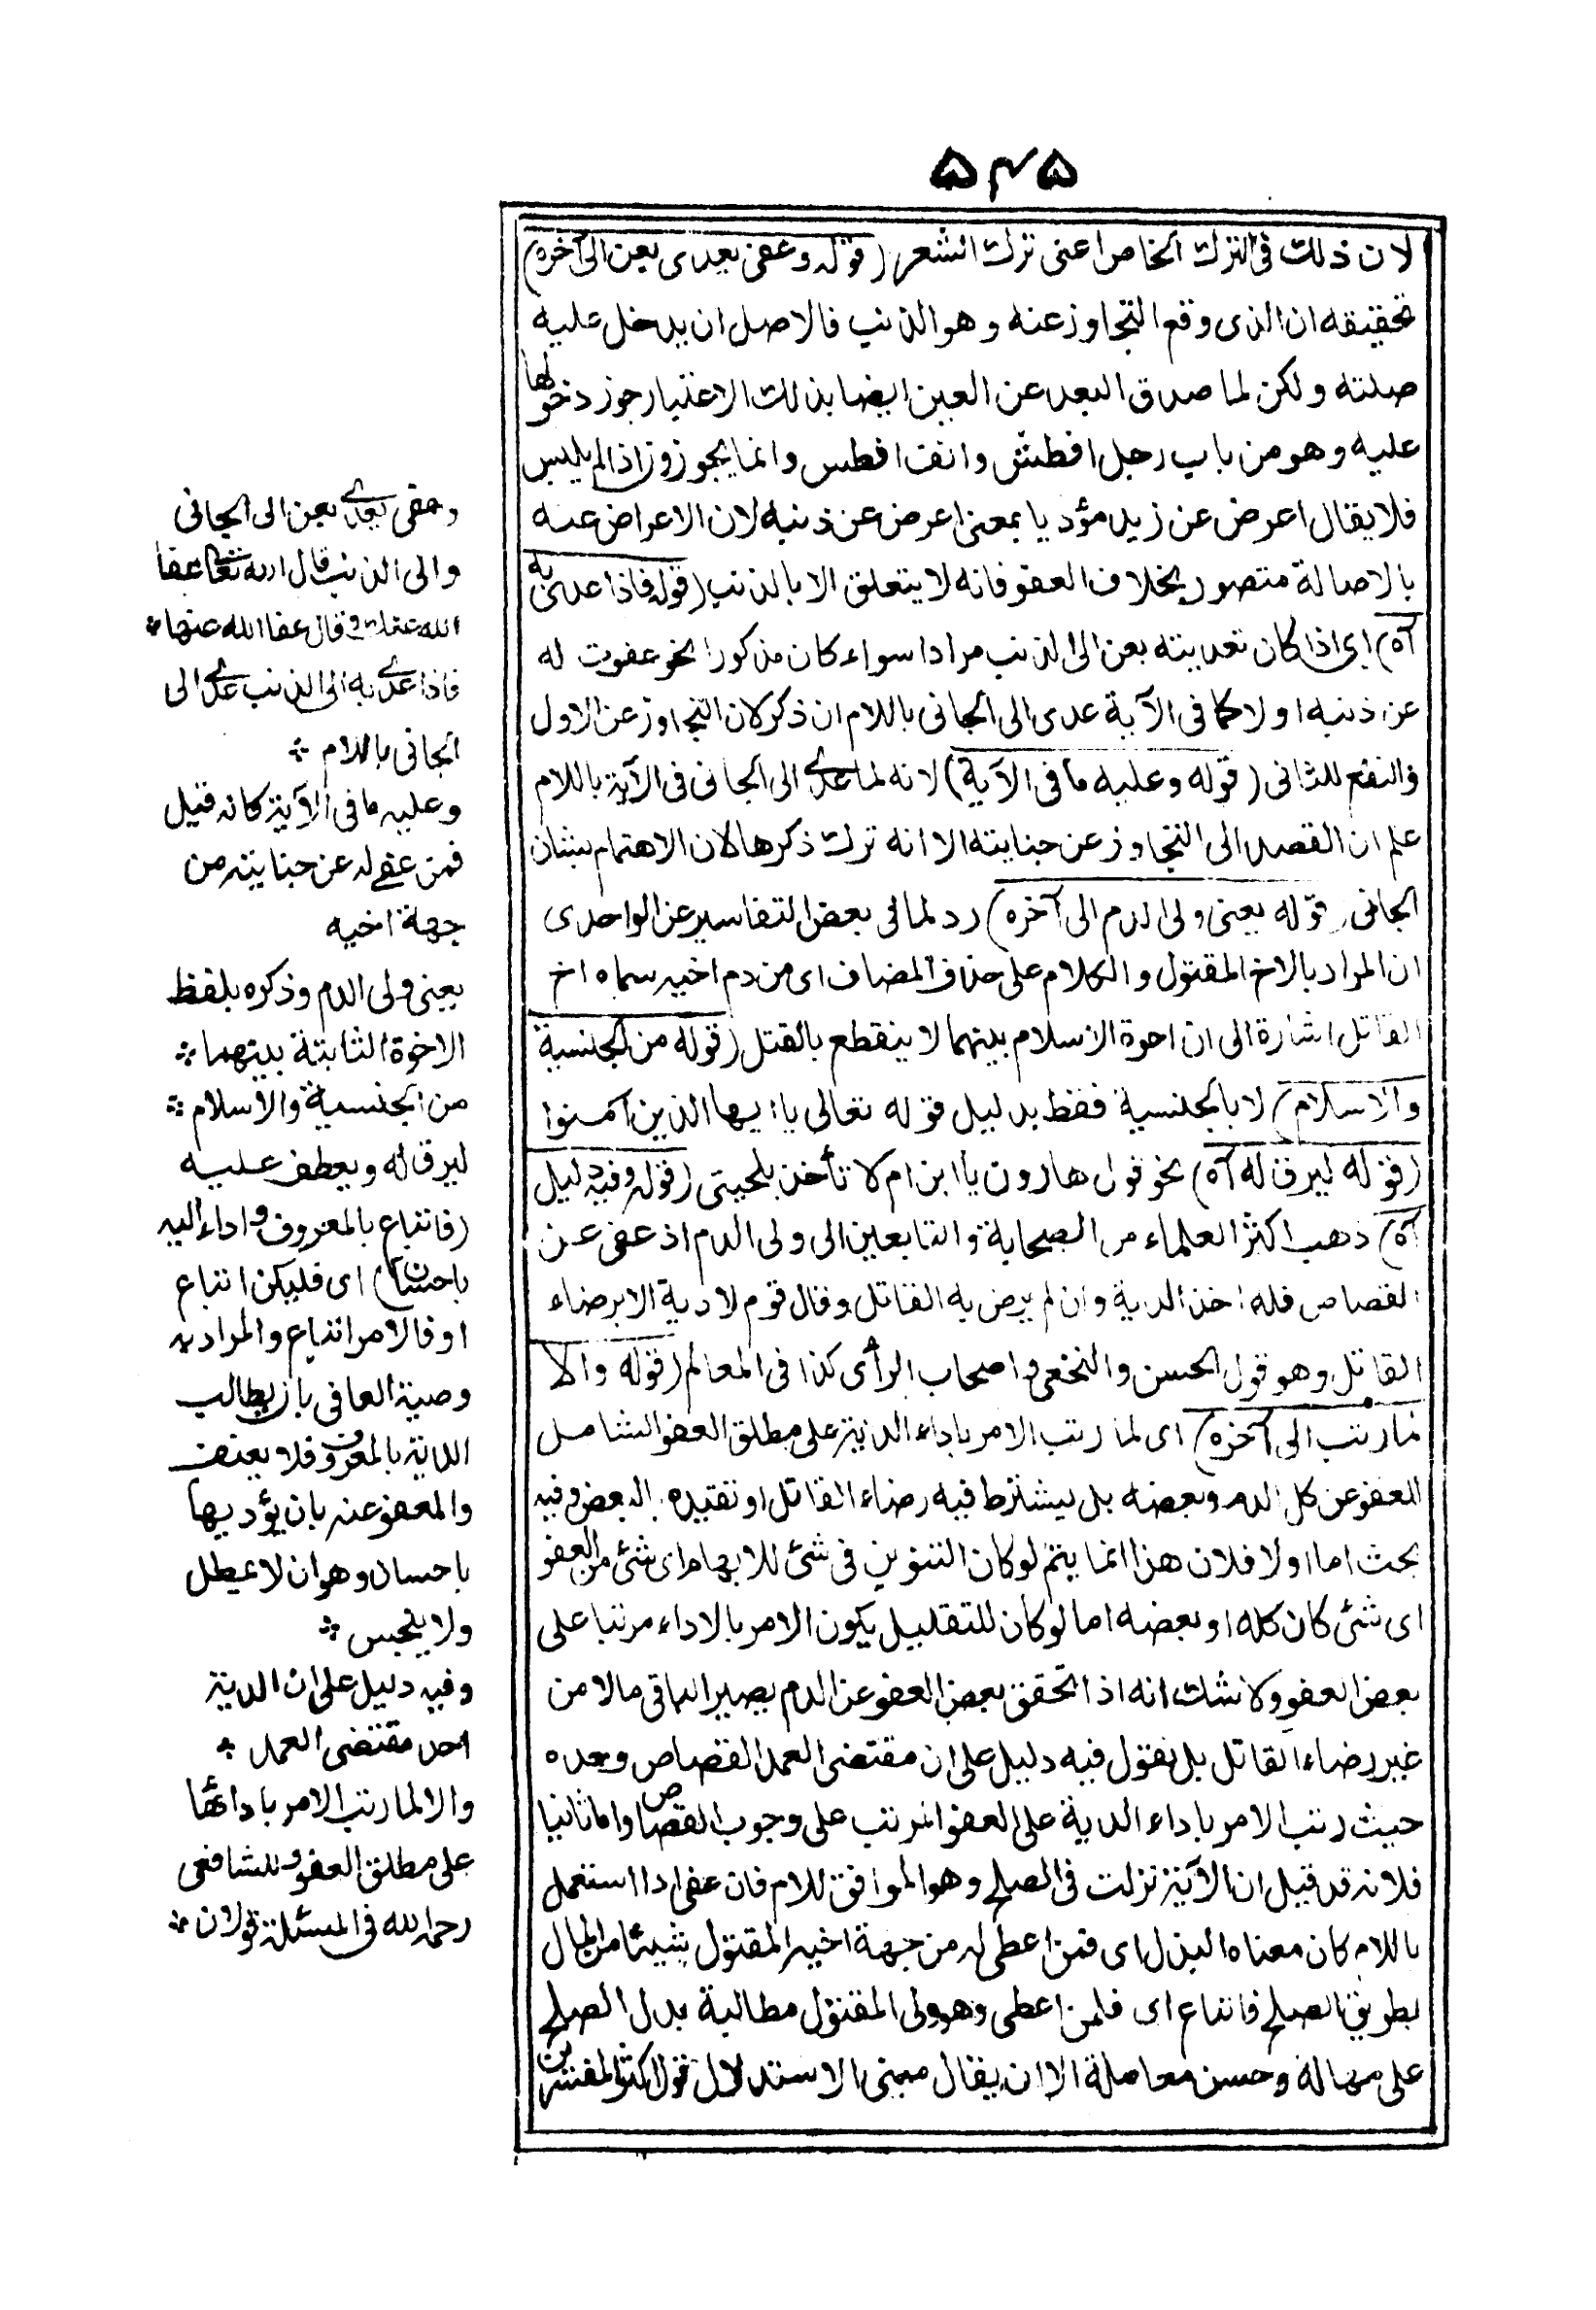 ۵۴۵
لان ذلك فى الترك الخاص اعنى ترك الشعر (قوله وعفى يعدى بعن الى آخره)
تحقيقه ان الذى وقع التجاوز عنه وهو الذنب فالاصل ان يدخل عليه
صلته ولكن لما صدق البعد عن العين ايضا بذلك الاعتبار جوز دخولها
عليه وهو من باب رجل افطس وانف افطس وانما يجوز اذا لم يلبس
فلا يقال اعرض عن زيد مؤديا بمعنى اعرض عن ذنبه لان الاعراض عنه
بالاصالة متصور بخلاف العفو فانه لا يتعلق الا بالذنب (قوله فاذا عدى به
آه) اى اذا كان تعديته بعن الى الذنب مرادا سواء كان مذكورا نحو عفوت له
عن ذنبه اولا كما فى الآية عدى الى الجانى باللام ان ذكر لان التجاوز عن الاول
والنفع للثانى (قوله وعليه ما فى الآية) لانه لما عدى الى الجانى فى الآية باللام
علم ان القصد الى التجاوز عن جنايته الا انه ترك ذكرها لان الاهتمام بشان
الجانى (قوله يعنى ولى الدم الى آخره) رد لما فى بعض التفاسير عن الواحدى
ان المراد بالاخ المقتول والكلام على حذف المضاف اى من دم اخيه سماه اخ
القاتل اشارة الى ان اخوة الاسلام بينهما لا ينقطع بالقتل (قوله من الجنسية
والاسلام) لا بالجنسية فقط بدليل قوله تعالى يا ايها الذين آمنوا
(قوله ليرق له آه) نحو قول هارون يا ابن ام لا تأخذ بلحيتى (قوله وفيه دليل
آه) ذهب اكثر العلماء من الصحابة والتابعين الى ولى الدم اذ عفى عن
القصاص فله اخذ الدية وان لم يرض به القاتل وقال قوم لا دية الا برضاء
القاتل وهو قول الحسن والنخعى واصحاب الرأى كذا فى المعالم (قوله والا
لما رتب الى آخره) اى لما رتب الامر باداء الدية على مطلق العفو الشامل
للعفو عن كل الدم وبعضه بل يشترط فيه رضاء القاتل او تقييده بالبعض وفيه
بحث اما اولا فلان هذا انما يتم لو كان التنوين فى شئ للابهام اى شئ من العفو
اى شئ كان كله او بعضه اما لو كان للتقليل يكون الامر بالاداء مرتبا على
بعض العفو ولا شك انه اذا تحقق بعض العفو عن الدم يصير الباقى مالا من
غير رضاء القاتل بل نقول فيه دليل على ان مقتضى العمد القصاص وحده
حيث رتب الامر باداء الدية على العفو المرتب على وجوب القصاص واما ثانيا
فلانه قد قيل ان الآية نزلت فى الصلح وهو الموافق للام فان عفى اذا استعمل
باللام كان معناه البذل اى فمن اعطى له من جهة اخيه المقتول شيئا من المال
بطريق الصلح فاتباع اى فلمن اعطى وهو ولى المقتول مطالبة بدل الصلح
على مهالة وحسن معاملة الا ان يقال مبنى الاستدلال قول اكثر المفسرين
وعفى يعدى بعن الى الجانى
والى الذنب قال الله تعالى عفا
الله عنك وقال عفا الله عنها ❊
فاذا عدى به الى الذنب عدى الى
الجانى باللام ❊
وعليه ما فى الآية كانه قيل
فمن عفى له عن جنايته من
جهة اخيه
يعنى ولى الدم وذكره بلفظ
الاخوة الثابتة بينهما ❊
من الجنسية والاسلام ❊
ليرق له ويعطف عليه
(فاتباع بالمعروف واداء اليه
باحسان) اى فليكن اتباع
او فالامر اتباع والمراد به
وصية العافى بان يطالب
الدية بالمعروف فلا يعنف
والمعفو عنه بان يؤديها
باحسان وهو ان لا يمطل
ولا يبخس ❊
وفيه دليل على ان الدية
احد مقتضى العمد ❊
والا لما رتب الامر بادائها
على مطلق العفو وللشافعى
رحمه الله فى المسئلة قولان ❊